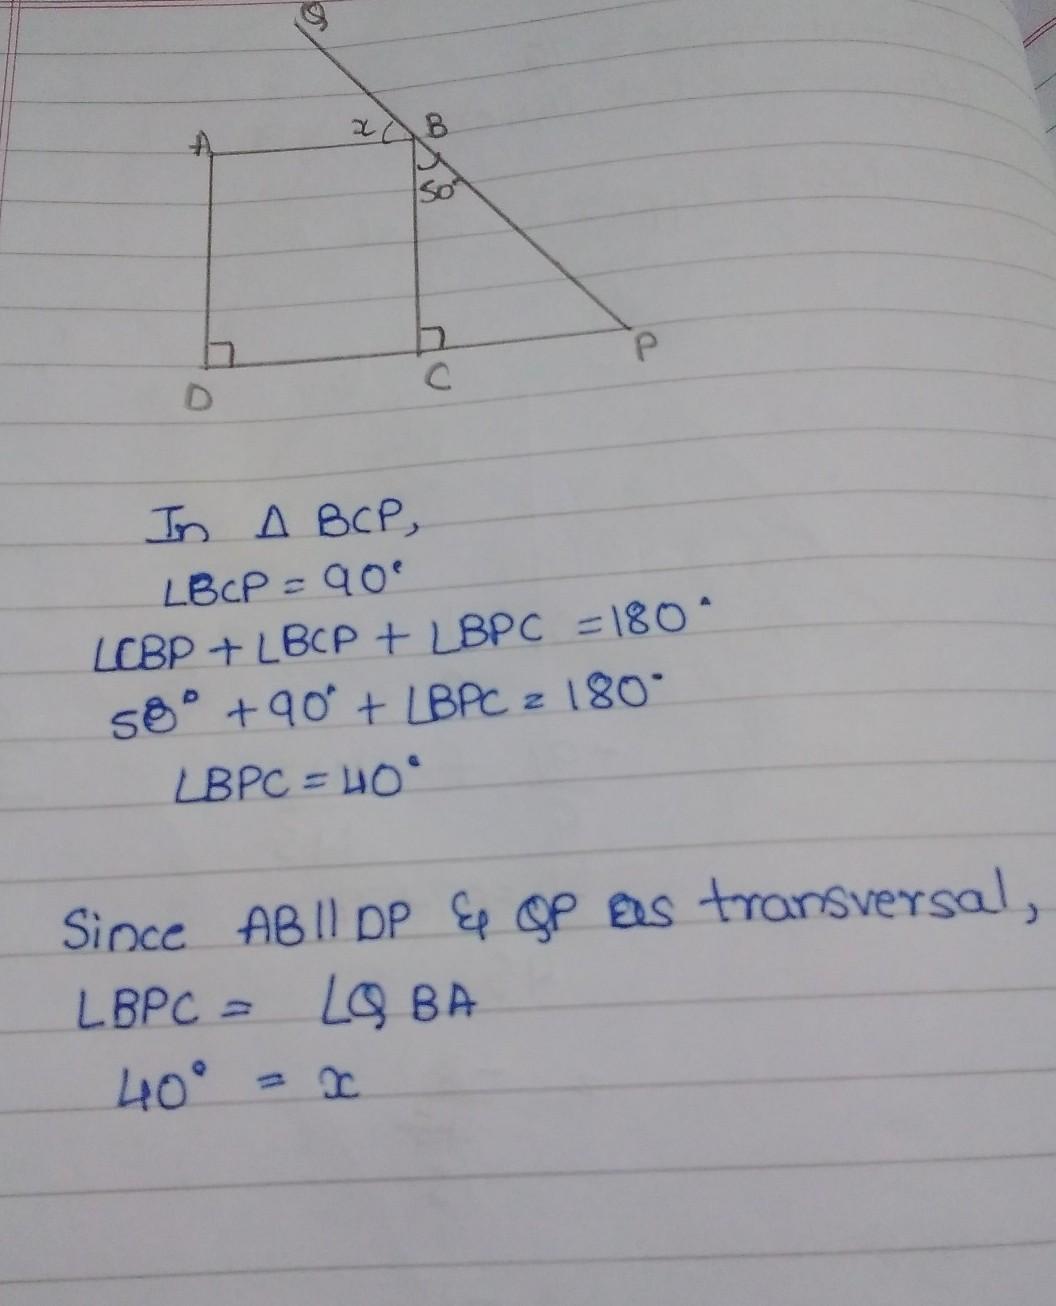 Q
x
B
A
50°
D
C
P
In Δ BCP,
∠BCP = 90°
∠CBP + ∠BCP + ∠BPC = 180°
50° + 90° + ∠BPC = 180°
∠BPC = 40°
Since AB || DP & QP as transversal,
∠BPC = ∠QBA
40° = x